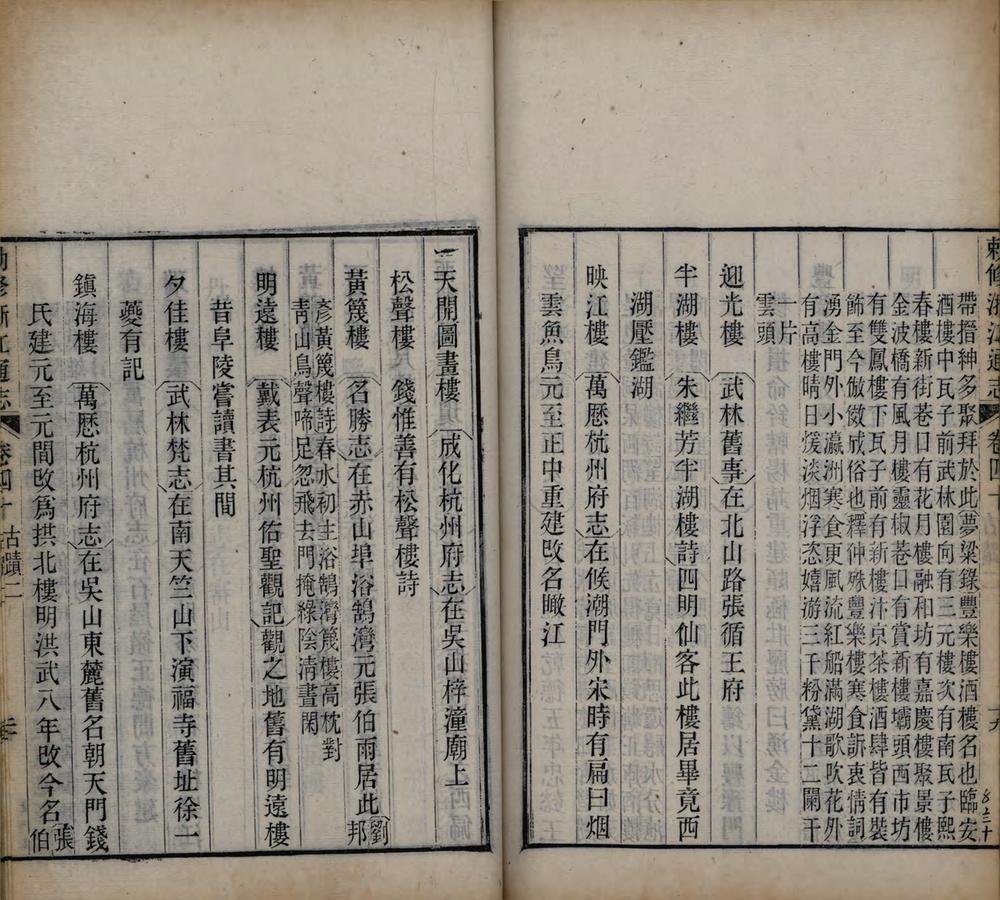 帶搢紳多聚拜於此夢梁錄豐樂樓酒樓名也臨安
酒樓中瓦子前武林園向有三元樓次有南瓦子熙
春樓新街巷口有花月樓融和坊有嘉慶樓聚景樓
金波橋有風月樓靈椒巷口有賞新樓壩頭西市坊
有雙鳳樓下瓦子前有新樓汴京茶樓酒肆皆有裝
飾至今倣儌成俗也釋仲殊豐樂樓寒食訴衷情詞
湧金門外小瀛洲寒食更風流紅船滿湖歌吹花外
有高樓晴日煖淡烟浮恣嬉游三千粉黛十二闌干
一片
雲頭
迎光樓 武林舊事在北山路張循王府
半湖樓 朱繼芳半湖樓詩四明仙客此樓居畢竟西
湖壓鑑湖
映江樓 萬厯杭州府志在候潮門外宋時有扁曰烟
雲魚鳥元至正中重建改名瞰江
卷四十 十九
天開圖畫樓 成化杭州府志在吳山梓潼廟上
松聲樓 錢惟善有松聲樓詩
黃篾樓 名勝志在赤山埠浴鵠灣元張伯雨居此 劉邦
彥黃篾樓詩春水初生浴鵠灣篾樓高枕對
靑山鳥聲啼足忽飛去門掩綠陰淸晝閑
明遠樓 戴表元杭州佑聖觀記觀之地舊有明遠樓
昔阜陵嘗讀書其間
夕佳樓 武林梵志在南天竺山下演福寺舊址徐一
夔有記
鎭海樓 萬厯杭州府志在吳山東麓舊名朝天門錢
氏建元至元間改爲拱北樓明洪武八年改今名 張伯
卷四十 古蹟二